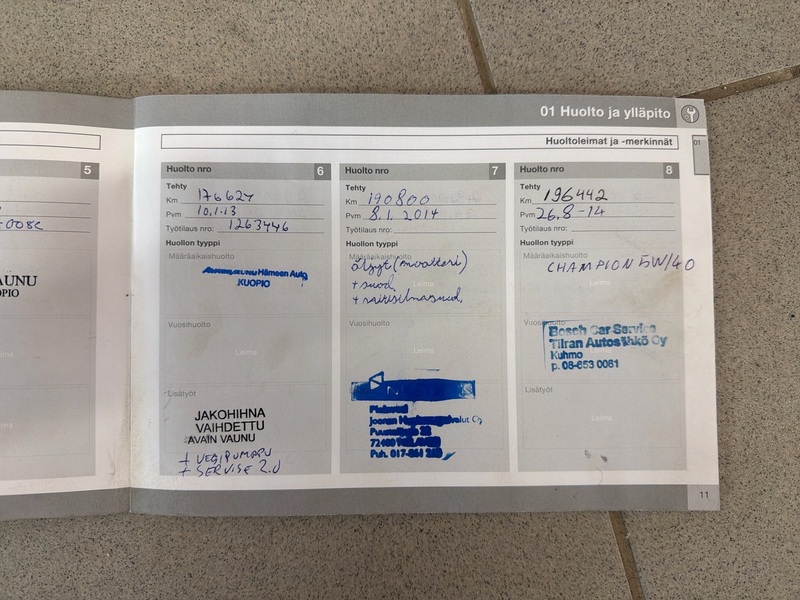 01 Huolto ja ylläpito
Huoltoleimat ja -merkinnät
01
5
-008C
AUNU
OPIO
Huolto nro 6
Tehty
Km 176627
Pvm 10.1.13
Työtilaus nro: 1263446
Huollon tyyppi
Määräaikaishuolto
Hämeen Auto
KUOPIO
Vuosihuolto
Leima
Lisätyöt
JAKOHIHNA
VAIHDETTU
AVAIN VAUNU
+ VESIPUMPU
+ SERVISE 2.0
Huolto nro 7
Tehty
Km 190800
Pvm 8.1.2014
Työtilaus nro:
Huollon tyyppi
Määräaikaishuolto
öljyt (moottori)
+ suod.
+ raitisilmasuod.
Leima
Vuosihuolto
Leima
Lisätyöt
Joonan
72400
Puh. 017-861
Huolto nro 8
Tehty
Km 196442
Pvm 26.8-14
Työtilaus nro:
Huollon tyyppi
Määräaikaishuolto
CHAMPION 5W/40
Leima
Vuosihuolto
Bosch Car Service
Tiiran Autosähkö Oy
Kuhmo
p. 08-653 0061
Leima
Lisätyöt
Leima
11